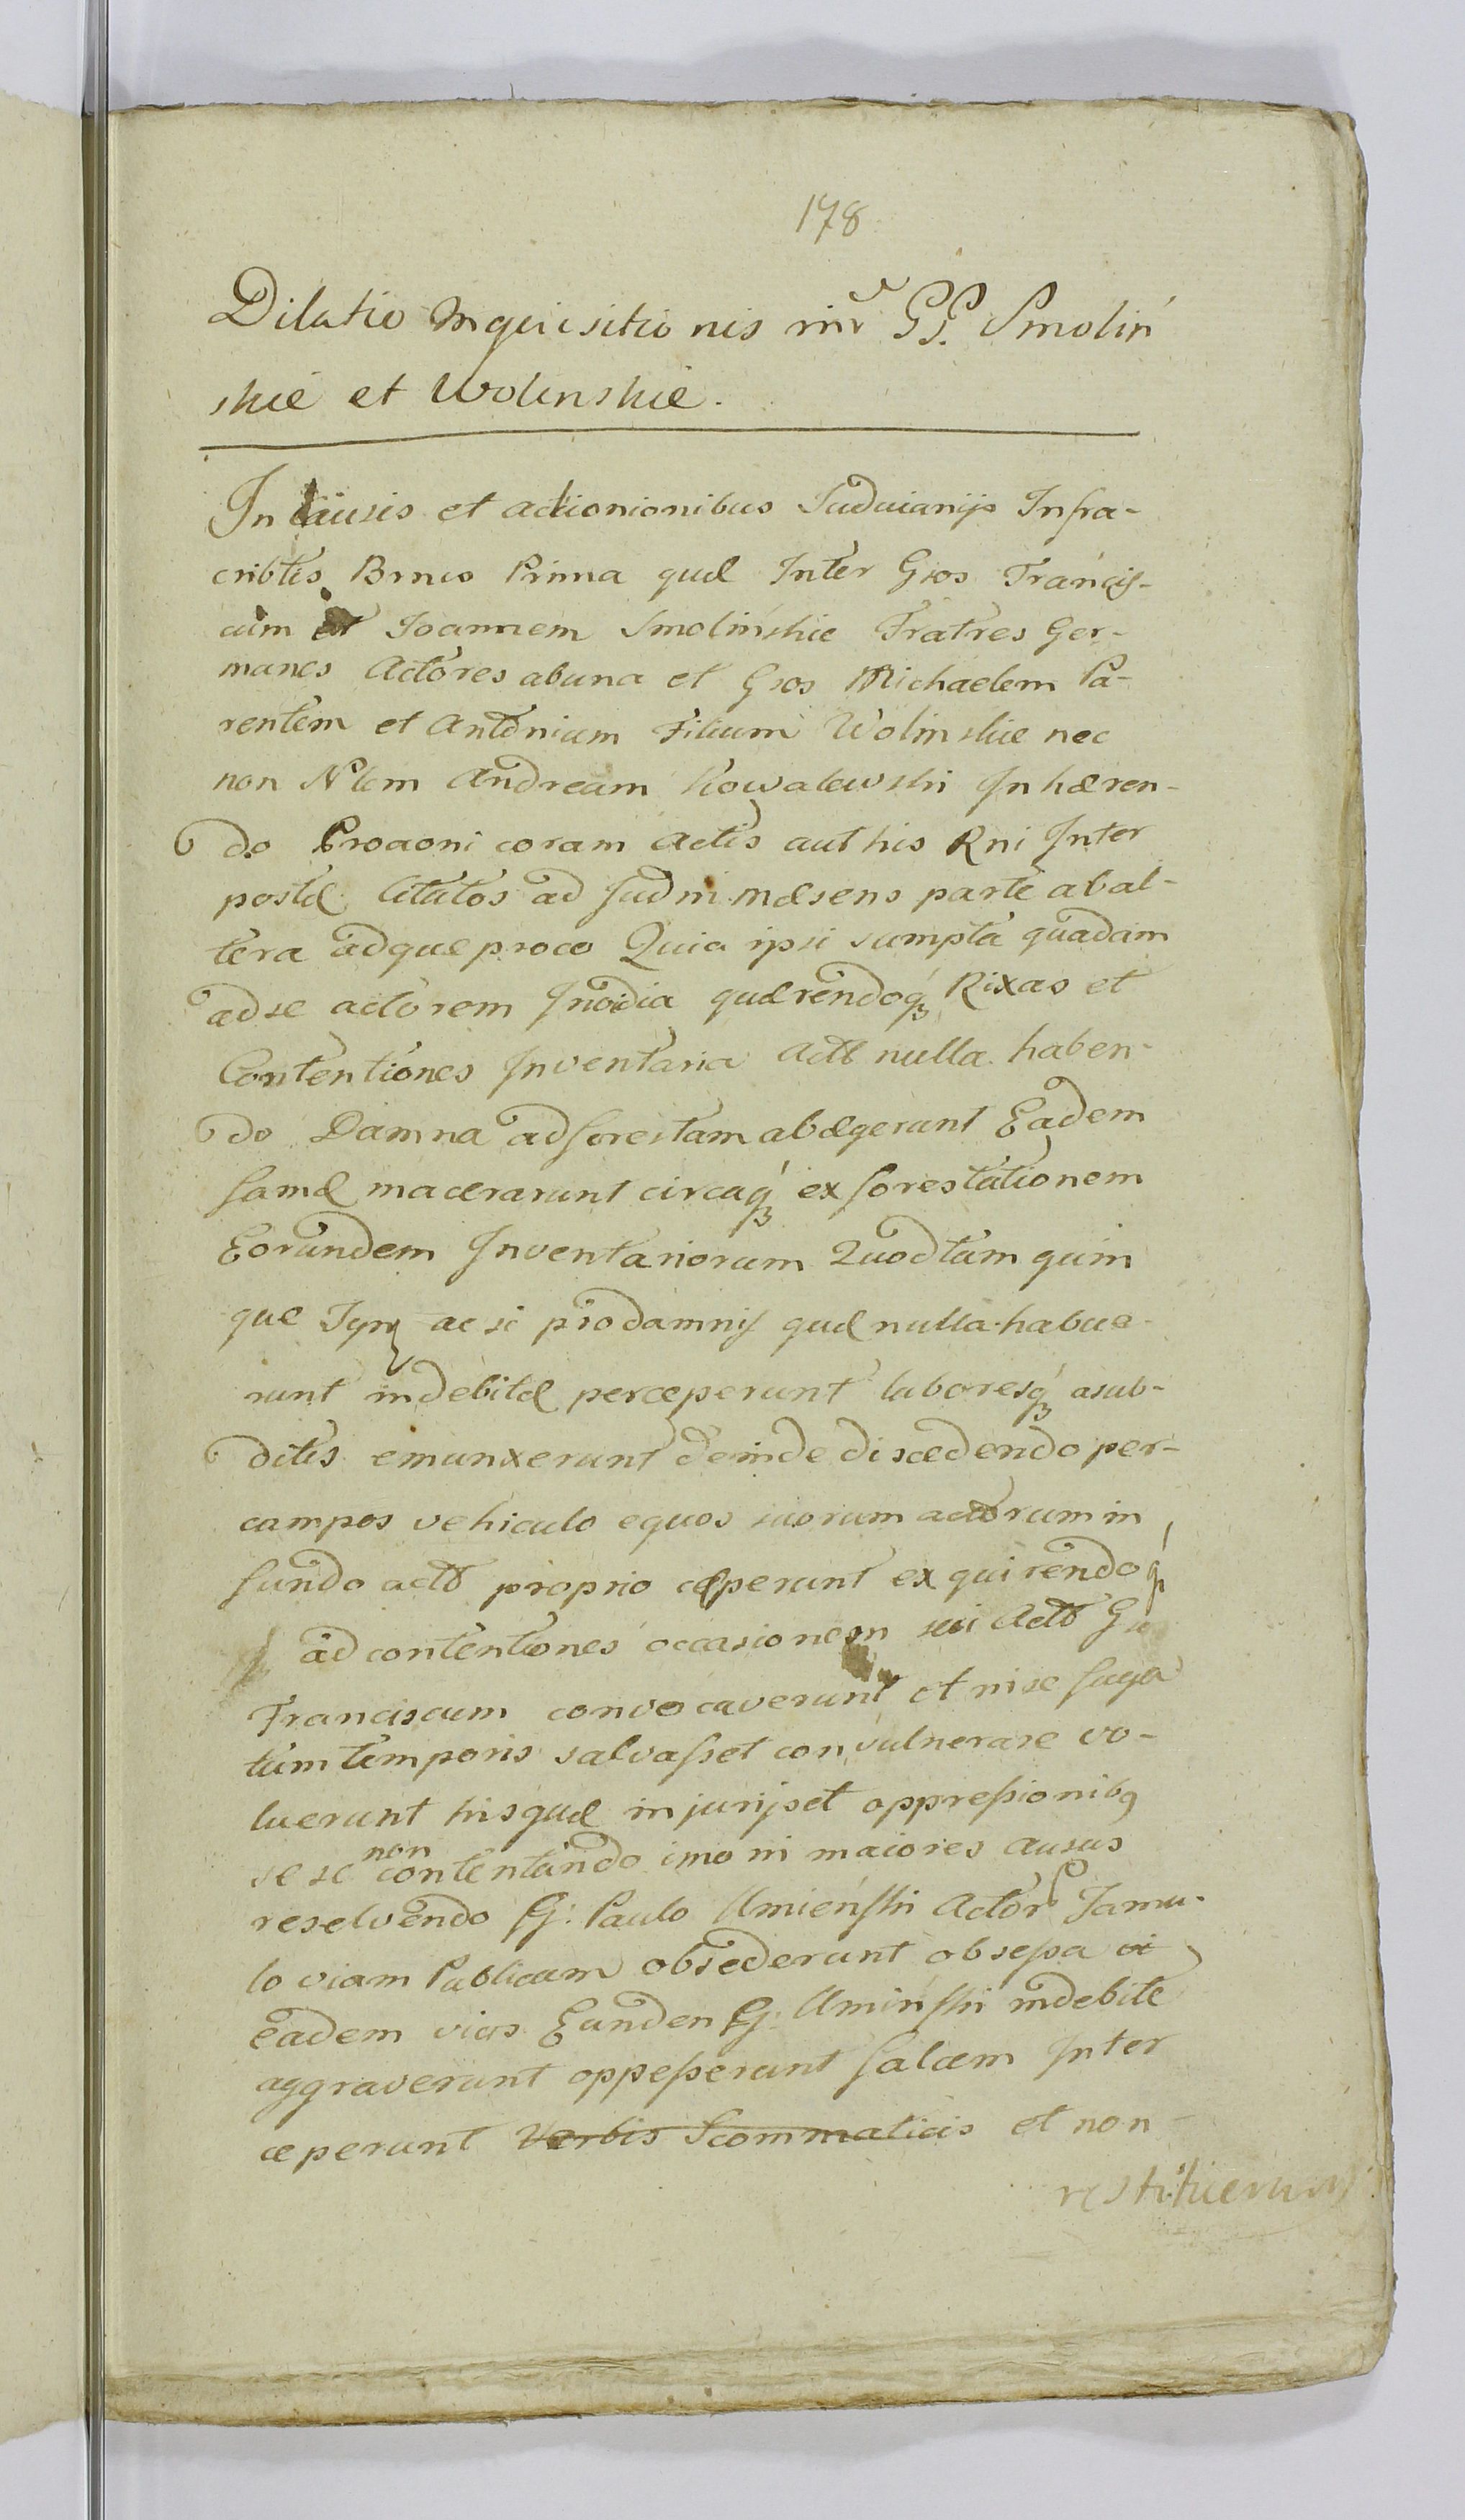 178
Dilatio Inquisitionis inr GG. Smoliń
skie et Wolinskie.
In Causis et actionionibus Iudicianijs Infra-
cribtis Binis Prima quæ Inter Gsos Francis-
cum et Ioannem Smolinskie Fratres Ger-
manos Actores abuna et Gsos Michaelem Pa-
rentem et Antonium Filium Wolinskie nec
non Nlem Andream Kowalewski Inhæren-
do Proaoni coram Actis aut his Rni Inter
postæ Citatos ad Iudm mæsens parte abal-
tera adque proco Quia ipsi sumpta quadam
adse actorem Invidia quærendoq́ Rixas et
Contentiones Inventaria Actb nulla haben-
do Damna adforestam abægerunt Eadem
famæ macerarunt circaq́ exforestationem
Eorundem Inventariorum Quodtum quin
que Tyn ac si prodamnis quæ nulla habue-
runt indebitæ perceperunt laboresq́ asub-
ditis emunxerunt deinde discedendo per-
campos vehiculo equos suorum actorum in
fundo actb proprio cæperunt exquirendoq́
ad contentiones occasionem sui Actb G
Franciscum convocaverunt et nise fuga
tum temporis salvasset convulnerare vo-
luerunt hisquæ injurijset oppressionibg
se se non contentando imo in maiores ausus
reselvendo G: Paulo Umieński Actor Famu-
lo viam Publicam obsederunt obsessa vi
eadem vias Eunden G: Umiński indebite
aggraverunt oppesserunt falcem Inter
ceperunt Verbis Scommaticis et non-
restituerunt